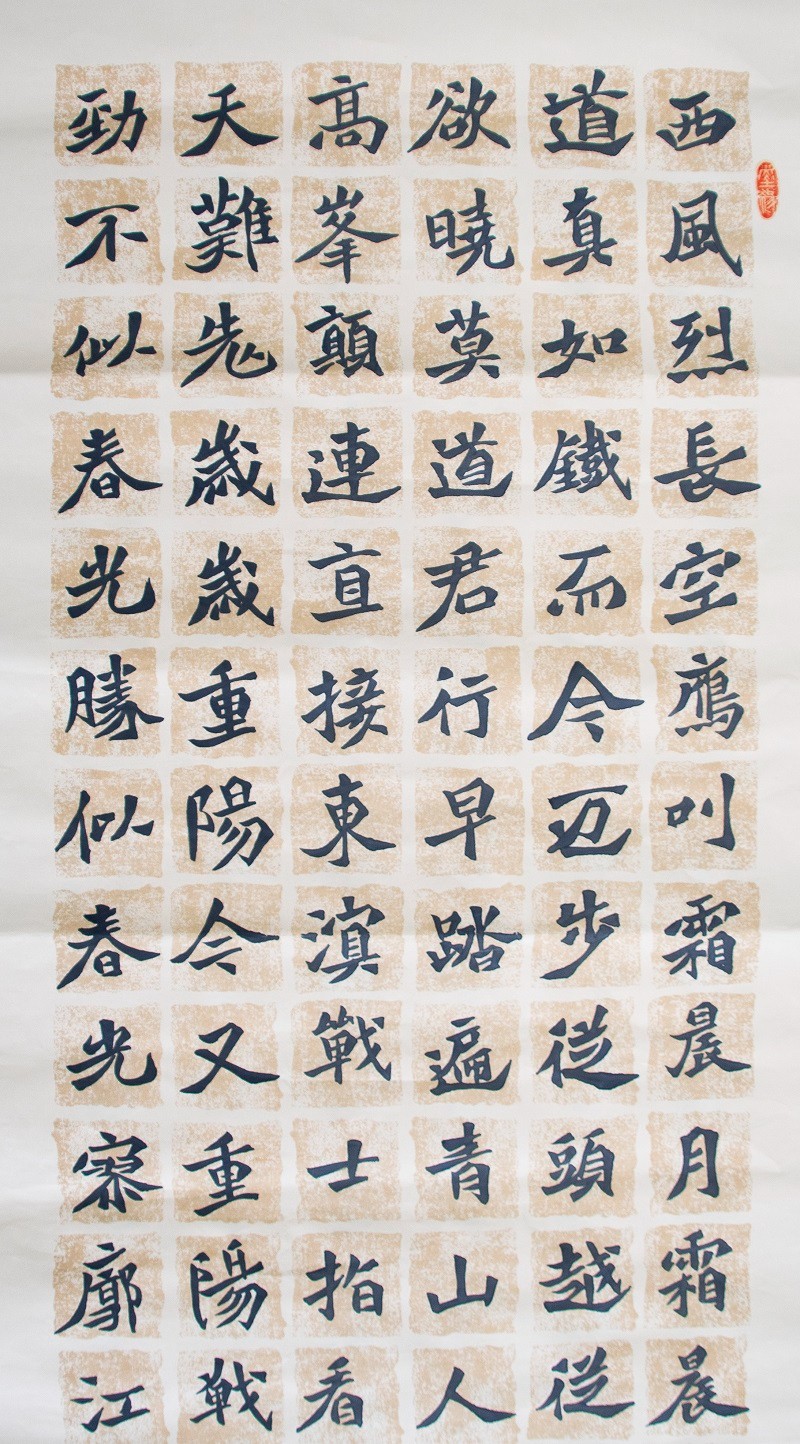 西風烈長空鴈叫霜晨月霜晨
道真如鐵而今迈步從頭越從
欲曉莫道君行早踏遍青山人
高峯顛連直接東溟戰士指看
天難老歲歲重陽今又重陽戰
勁不似春光勝似春光寥廓江